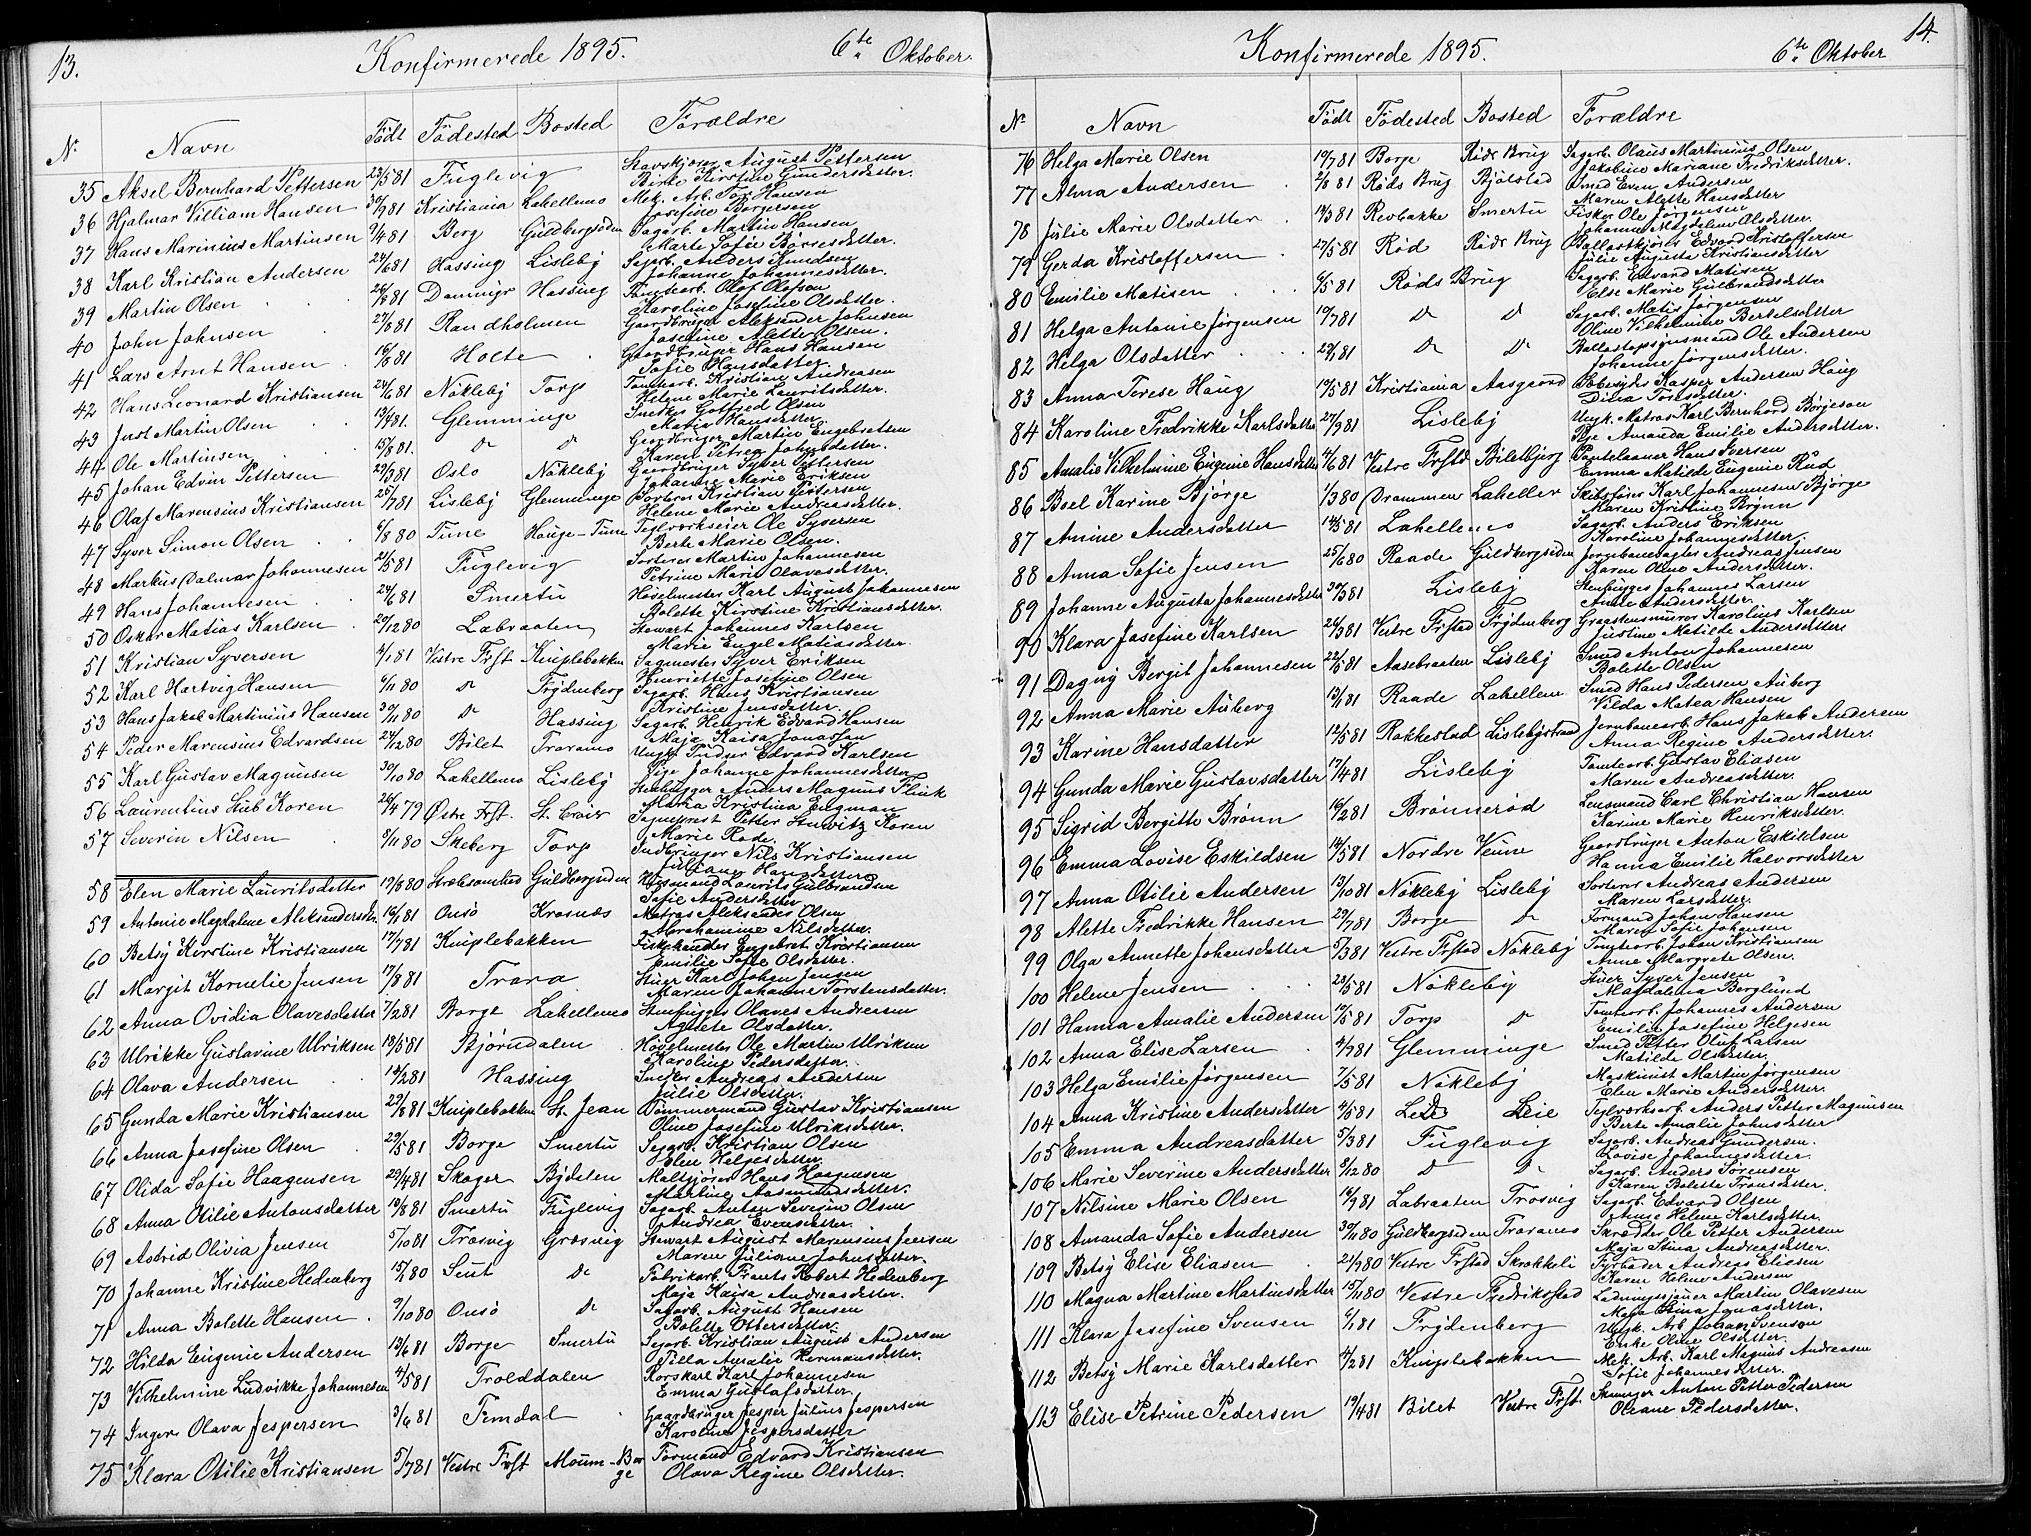 13.
Konfirmerede 1895.
6te Oktober.
Nr. Navn Födt Födested Bosted Forældre
35 Aksel Bernhard Pettersen 23/5 81 Fuglevig August Pettersen
Kirstine Gundersdatter.
36 Hjalmar Villiam Hansen 30/9 81 Kristiania Lahellemo Mek. Arb. Tor Hansen
Josefine Borgersen
37 Hans Marinius Martinsen 9/4 81 Berg Guldbergsiden Sagarb. Martin Hansen
Marte Sofie
38 Karl Kristian Andersen 24/6 81 Hassing Lisleby Sagarb. Anders Knudsen
Johanne Johannesdatter.
39 Martin Olsen 26/8 81 Hassing Tomtearb. Olof Olofsen
Karoline Josefine Olsdatter.
40 John Johnsen 27/8 81 Randholmen Gaardbruger Aleksander Johnsen
Josefine Alette Olsen.
41 Lars Arnt Hansen 16/8 81 Holte Gaardbruger Hans Hansen
Sofie Hansdatter
42 Hans Leonard Kristiansen 24/6 81 Nökleby Torp Tomtearb. Kristian Andreasen
Helene Marie Lauritsdatter.
43 Just Martin Olsen 13/4 81. Glemminge Snedker Gotfred Olsen
Hansdatter
44 Ole Martinsen 15/8 81. do do Gaardbruger Martin Engebretsen
Karen Petrea Johnsdatter.
45 Johan Edvin Pettersen 29/3 81 Oslo Nökleby Gaardbruger Syver Pettersen
Johanne Marie Eriksen
46 Olaf Marensius Kristiansen 25/7 81 Lisleby Glemminge Sorterer Kristian Pettersen
Helene Marie Andreasdatter.
47 Syver Simon Olsen 6/8 80 Tune Hauge-Tune Teglverkseier Ole Syversen
Berte Marie Olsen.
48 Markus Dalmar Johannesen 21/5 81 Fuglevig Sorterer Martin Johannesen
Petrine Marie Olavesdatter.
49 Hans Johannesen 24/6 81 Smertu Hövelmester Karl August Johannesen
Aolette Kirstine Kristiansdatter.
50 Oskar Matias Karlsen 29/12 80 Labraaten Stewart Johannes Karlsen
Marie Engel Matiasdatter.
51 Kristian Syversen 4/1 81 Vestre Frst Kniplebakken Sagmester Syver Eriksen
Henriette Josefine Olsen
52 Karl Hartvig Hansen 6/11 80 do Frydenberg Sagarb. Hans Kristiansen
Kristine Jensdatter.
53 Hans Jakob Martinius Hansen 30/11 80 do Hassing Sagarb. Henrik Edvard Hansen
Maja Kaisa Jonassen
54 Peder Marensius Edvardsen 24/12 80 Bilet Traramo Ungk. Edvard Karlsen
Pige Johanne Johannesdatter
55 Karl Gustav Magnusen 30/10 80 Lahellemo Lisleby Stenhugger Anders Magnus Flink
Maria Kristina Engman
56 Laurentius Stub Koren 26/4 79 Östre Frst. St. Croix Sogneprest Petter Koren
Marie Rode.
57 Severin Nilsen 5/11 80 Skeberg Torp Indbringer Nils Kristiansen
Juliane Hansdatter
58 Elen Marie Lauritsdatter 19/8 80 Guldbergsiden Laurits Gulbrandsen
Sofie Andersdatter
59 Antonie Magdalene Aleksandersdtr. 16/1 81 Onsö Krosnæs Matros Aleksander Olsen
Abrahamine Nilsdatter.
60 Betsy Kirstine Kristiansen 17/7 81 Kniplebakken Fiskehandler Engebret Kristiansen
Emilie Sofie Olsdatter.
61 Margit Kornelie Jensen 17/8 81 Trara Stuer Karl Johan Jensen
Maren Johanne Torstensdatter.
62 Anna Ovidia Olavesdatter 7/2 81 Borge Lahellemo Stenhugger Olaves Andreasen
Agnete Olsdatter.
63 Ulrikke Gustavine Ulriksen 18/5 81 Björndalen Hövelmester Ole Martin Ulriksen
Karoline Pedersdatter.
64 Olava Andersen 14/2 81 Hassing Snedker Andreas Andersen
Julie Olsdatter.
65 Gunda Marie Kristiansen 29/8 81 Kniplebakken St. Jean Tömmermand Gustav Kristiansen
Oline Josefine Ulriksdatter.
66 Anna Josefine Olsen 29/5 81 Borge Smertu Sagarb. Kristian Olsen
Elen Helgesdatter
67 Olida Sofie Haagensen 29/4 81 Skager Bydalen Maltgjører Hans Haagensen
Martine Aasmundsdatter.
68 Anna Otilie Antonsdatter 19/8 81 Smertu Fuglevig Sagarb. Anton Severin Olsen
Andrea Evensdatter.
69 Astrid Olivia Jensen 5/10 81 Trosvig Gresvig Stewart August Marensius Jensen
Maren Juliane Johnsdatter.
70 Johanne Kristine Hedenberg 15/2 80 Seut do Fabrikarb. Frants Robert Hedenberg
Maja Kaisa Andreasdatter.
71 Anna Bolette Hansen. 9/10 80 Onsö do Sagarb. August Hansen
Bolette Ottersdatter.
72 Hilda Eugenie Andersen 13/6 81 Borge Smertu Sagarb. Kristian August Andersen
Tilla Amalie Hermansdatter.
73 Vilhelmine Ludvikke Johannesen 4/5 81 Trolddalen Korskarl Karl Johannesen
Emma Gustafsdatter.
74 Inger Olava Jespersen 3/6 81 Femdal Gaardbruger Jesper Julius Jespersen
Karoline Jespersdatter
75 Klara Otilie Kristiansen 5/7 81 Vestre Frst Moum-Borge Formand Edvard Kristiansen
Olava Regine Olsdatter.
14.
Konfirmerede 1895.
6te Oktober
Nr Navn Födt Födested Bosted Forældre
76 Helga Marie Olsen 19/7 81 Borge Röds Brug Sagarb. Olaus Martinius Olsen
Jakobine Mariane Fredriksdatter.
77 Alma Andersen 2/8 81 Röds Brug Bjölstad Smed Even Andersen
Maren Alette Hansdatter
78 Julie Marie Olsdatter 14/3 81 Revbakke Smertu Fisker Ole Jørgensen
Johanne Magdalene Olsdatter.
79 Gerda Kristoffersen 27/5 81 Röd Röds Brug Ballastkjörer Edvard Kristoffersen
Julie Augusta Kristiansdatter
80 Emilie Matisen 6/5 81 Röds Brug Sagarb. Edvard Matisen
Else Marie Gulbrandsdatter
81 Helga Antonie Jørgensen 10/7 81 do do Sagarb. Matis Jørgensen
Oline Vilhelmine Bertelsdatter
82 Helga Olsdatter 29/1 81 do do Ole Andersen
Johanne Jørgensdatter.
83 Anna Terese Haug 19/5 81 Kristiania Aasgaard Kasper Andersen Haug
Dina
84 Karoline Fredrikke Karlsdatter 27/9 81 Lisleby Ungk. Matros Karl Bernhard Börjeson
Pige Amanda Emilie Andersdatter.
85 Amalie Vilhelmine Eugenie Hansdatter 4/6 81 Vestre Frstd Biletbjerg Pantelaaner Hans Iversen
Emma Matilde Eugenie Rud
86 Bsel Karine Bjørge 1/3 80 Drammen Lahellen Skibsfører Karl Johannesen Bjørge
Maren Kristine Brynn
87 Amine Andersdatter 14/5 81 Lahellemo Sagarb. Anders Eriksen
Karoline Johannesdatter.
88 Anna Sofie Jensen 25/6 80 Raade Guldbergsiden Andreas Jensen
Karen Oline Andersdatter.
89 Johanne Augusta Johannesdatter 30/3 81 Lisleby Stenhugger Johannes Larsen
Anne Andersdatter.
90 Klara Josefine Karlsen 26/3 81 Vestre Frstad Frydenberg Graastensmurer Karolius Karlsen
Justine Matilde Andersdatter.
91 Dagny Bergit Johannesen 22/5 81 Aasebraaten Lisleby Smed Anton Johannesen
Bolette Olsen
92 Anna Marie Auberg 13/1 81 Raade Lahellene Smed Hans Pedersen Auberg
Vilda Matea Hansen
93 Karine Hansdatter 12/5 81 Rakkestad Lislebystrand Jernbanearb. Hans Jakob Andersen
Anna Regine Andersdatter.
94 Gunda Marie Gustavsdatter 17/4 81 Lisleby Tomtearb. Gustav Eliasen
Maren Andreasdatter.
95 Sigrid Bergitte Brönn 16/2 81 Brönneröd Lensmand Carl Christian Hansen
Karine Marie Henriksdatter.
96 Emma Lovise Eskildsen 14/5 81 Nordre Veume Gaardbruger Anton Eskildsen
Hanna Emilie Halvorsdatter
97 Anna Otilie Andersen 13/10 81 Nökleby Lisleby Sorterer Andreas Andersen
Maren Larsdatter.
98 Alette Fredrikke Hansen 29/7 81 Borge do Formand Johan Hansen
Maren Sofie Johansen
99 Olga Annette Johansdatter 5/3 81 Vestre Frstad Nökleby Tomtearb. Johan Kristiansen
Anne Margrete Olsen.
100 Helene Jensen 28/5 81 Nökleby Stuer Syver Jensen
Magdalena Berglund
101 Hanna Amalie Andersen 19/5 81 Torp do Tomtearb. Johannes Andersen
Emilie Josefine Helgesen
102 Anna Elise Larsen 4/7 81 Glemminge Smed Petter Oluf Larsen
Matilde Olsdatter.
103 Helga Emilie Jørgensen 7/5 81 Nökleby Maskinist Martin Jørgensen
Elen Marie Andersdatter.
104 Anna Kristine Andersdatter 4/5 81 Leie Teglverksarb. Anders Petter Magnusen
Berte Amalie Johnsdatter
105 Emma Andreasdatter 5/3 81 Fuglevig Sagarb. Andreas Gundersen.
Lovise Johannesdatter.
106 Marie Severine Andersdatter 8/12 80 do do Sagarb. Anders Torensen
Karen Bolette Tronsdatter.
107 Nilsine Marie Olsen 14/9 81 Labraaten Trosvig Sagarb. Edvard Olsen
Anne Helene Karlsdatter.
108 Amanda Sofie Andersen 30/11 80 Guldbergsiden Traramo Skrædder Ole Petter Andersen
Maja Stina Andreasdatter.
109 Betsy Elise Eliasen 21/9 80 Vestre Frstad Skrokkeli Fyrbøder Andreas Eliasen
Karen Helene Andersen
110 Magna Martine Martinsdatter 15/11 80 Vestre Fredrikstad Martin Olavesen
Maja Stina Jonasdatter.
111 Klara Josefine Svensen 6/1 81 Frydenberg Ungk. Arb Johan Svenson
Enke Oline Olsdatter.
112 Betsy Marie Karlsdatter 4/2 81 Kniplebakken Mek. Arb. Karl Magnus Andreasen
Sofie Johannesdatter.
113 Elise Petrine Pedersen 19/4 81 Bilet Vestre Frst. Anton Petter Pedersen
Oleane Pedersdatter.